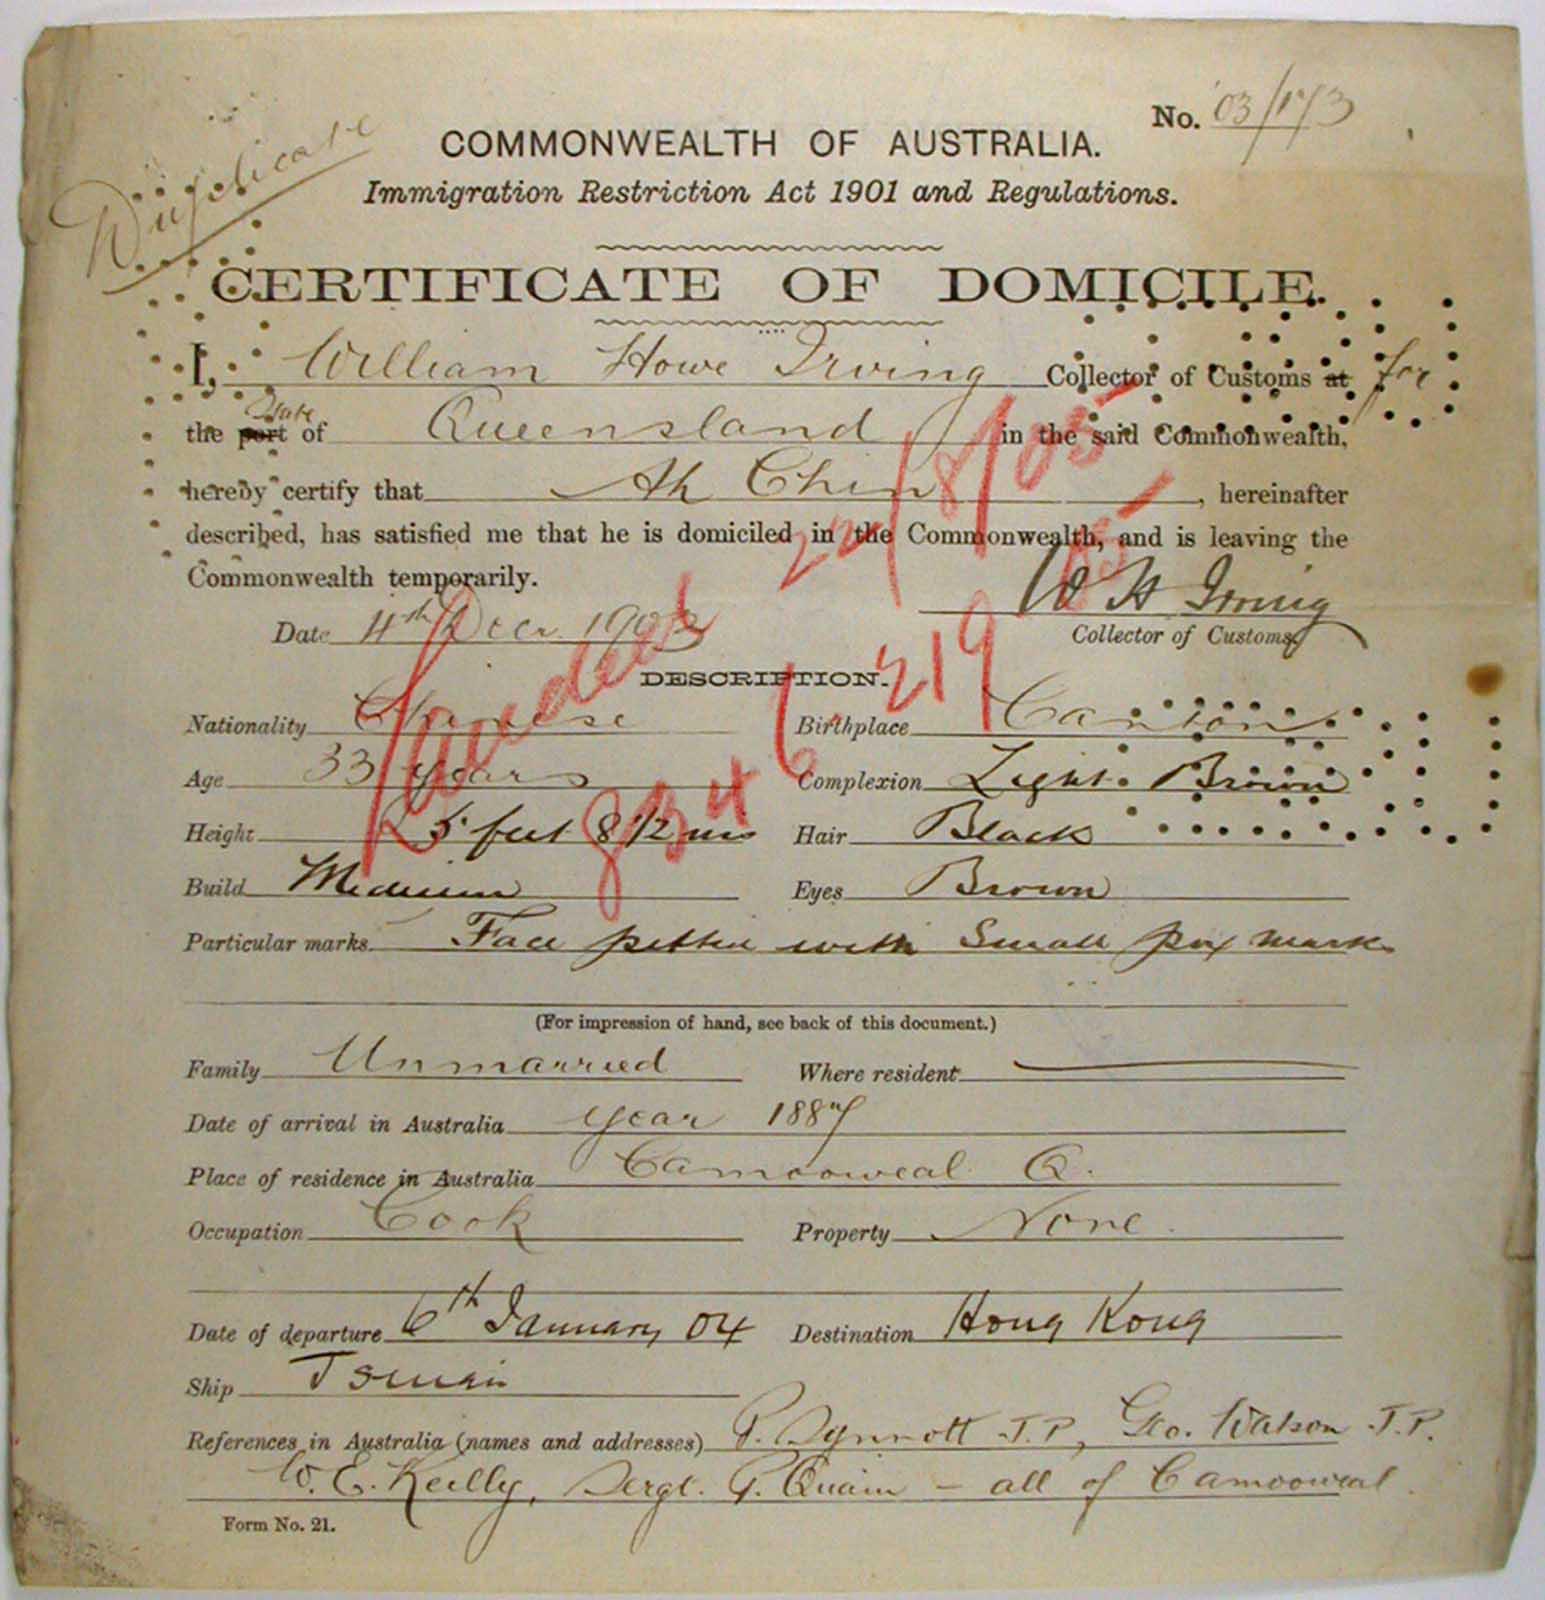 No. 03/173
Duplicate
COMMONWEALTH OF AUSTRALIA.
Immigration Restriction Act 1901 and Regulations.
CERTIFICATE OF DOMICILE.
I, William Howe Irving Collector of Customs at for
the port State of Queensland in the said Commonwealth,
hereby certify that Ah Chin, hereinafter
described, has satisfied me that he is domiciled in the Commonwealth, and is leaving the
Commonwealth temporarily.
W H Irving
Date 4th Decr 1903 Collector of Customs.
Landed 22/8/05
DESCRIPTION.
Nationality Chinese Birthplace Canton
Age 33 years Complexion Light Brown
Height 5 feet 8 1/2 ins Hair Black
Build Medium Eyes Brown
Particular marks Face pitted with Small pox marks
(For impression of hand, see back of this document.)
Family Unmarried Where resident
Date of arrival in Australia year 1887
Place of residence in Australia Camooweal Q.
Occupation Cook Property None.
Date of departure 6th January 04 Destination Hong Kong
Ship Tsinan
References in Australia (names and addresses) P. Synnott J.P., Geo. Watson J.P.
W. E. Reilly, Sergt. P. Quain - all of Camooweal.
Form No. 21.